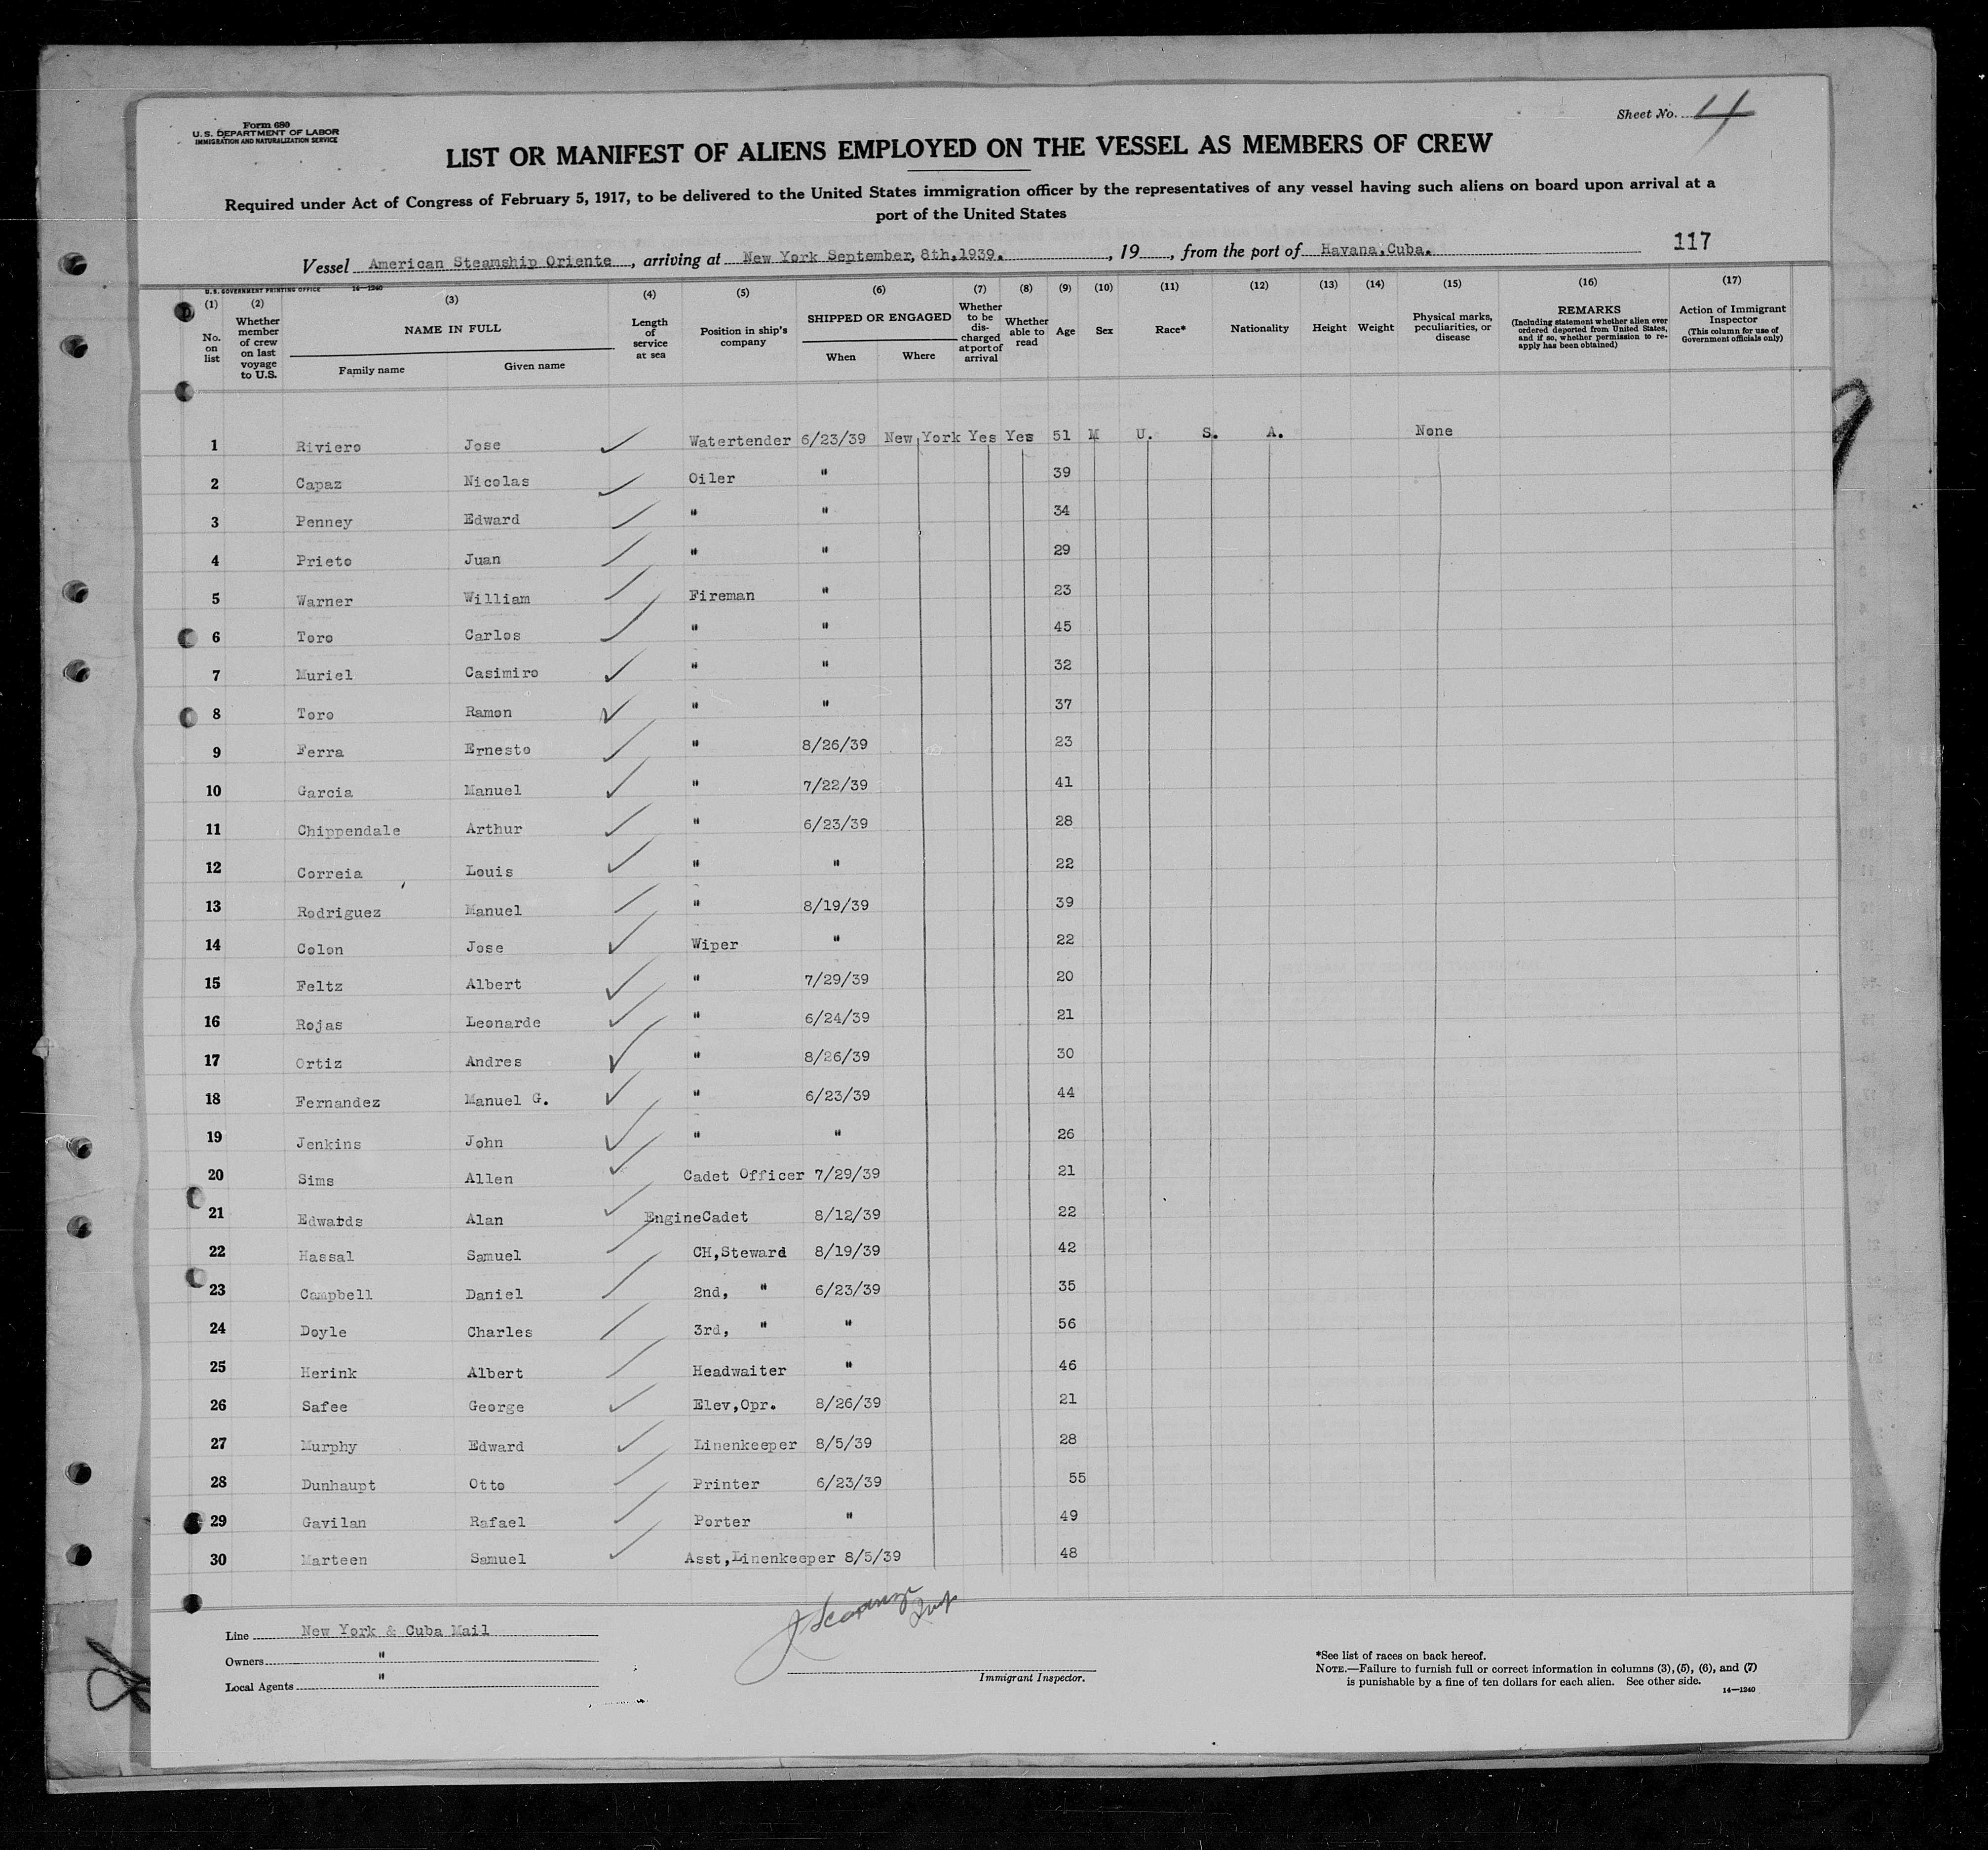 Form 680
U. S. DEPARTMENT OF LABOR
IMMIGRATION AND NATURALIZATION SERVICE
Sheet No. 4
LIST OR MANIFEST OF ALIENS EMPLOYED ON THE VESSEL AS MEMBERS OF CREW
Required under Act of Congress of February 5, 1917, to be delivered to the United States immigration officer by the representatives of any vessel having such aliens on board upon arrival at a
port of the United States
117
Vessel American Steamship Oriente, arriving at New York September, 8th,1939., 19, from the port of Havana,Cuba.
U. S. GOVERNMENT PRINTING OFFICE 14—1240
(1) No. on list
(2) Whether member of crew on last voyage to U.S.
(3) NAME IN FULL
Family name Given name
(4) Length of service at sea
(5) Position in ship's company
(6) SHIPPED OR ENGAGED
When Where
(7) Whether to be discharged at port of arrival
(8) Whether able to read
(9) Age
(10) Sex
(11) Race*
(12) Nationality
(13) Height
(14) Weight
(15) Physical marks, peculiarities, or disease
(16) REMARKS (Including statement whether alien ever ordered deported from United States, and if so, whether permission to reapply has been obtained)
(17) Action of Immigrant Inspector (This column for use of Government officials only)
1 Riviero Jose Watertender 6/23/39 New York Yes Yes 51 M U. S. A. None
2 Capaz Nicolas Oiler " 39
3 Penney Edward " " 34
4 Prieto Juan " " 29
5 Warner William Fireman " 23
6 Toro Carlos " " 45
7 Muriel Casimiro " " 32
8 Toro Ramon " " 37
9 Ferra Ernesto " 8/26/39 23
10 Garcia Manuel " 7/22/39 41
11 Chippendale Arthur " 6/23/39 28
12 Correia Louis " " 22
13 Rodriguez Manuel " 8/19/39 39
14 Colon Jose Wiper " 22
15 Feltz Albert " 7/29/39 20
16 Rojas Leonarde " 6/24/39 21
17 Ortiz Andres " 8/26/39 30
18 Fernandez Manuel G. " 6/23/39 44
19 Jenkins John " " 26
20 Sims Allen Cadet Officer 7/29/39 21
21 Edwards Alan EngineCadet 8/12/39 22
22 Hassal Samuel CH,Steward 8/19/39 42
23 Campbell Daniel 2nd, " 6/23/39 35
24 Doyle Charles 3rd, " " 56
25 Herink Albert Headwaiter " 46
26 Safee George Elev,Opr. 8/26/39 21
27 Murphy Edward Linenkeeper 8/5/39 28
28 Dunhaupt Otto Printer 6/23/39 55
29 Gavilan Rafael Porter " 49
30 Marteen Samuel Asst,Linenkeeper 8/5/39 48
Line New York & Cuba Mail
Owners "
Local Agents "
Immigrant Inspector.
*See list of races on back hereof.
NOTE.—Failure to furnish full or correct information in columns (3), (5), (6), and (7)
is punishable by a fine of ten dollars for each alien. See other side.
14—1240